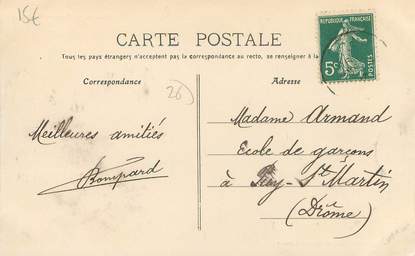 15€
CARTE POSTALE
Tous les pays étrangers n'acceptent pas la correspondance au recto, se renseigner à la
RÉPUBLIQUE FRANÇAISE
5c
POSTES
Correspondance
Adresse
26
Meilleures amitiés
Bompard
Madame Armand
Ecole de garçons
à Puy-St Martin
(Drôme)